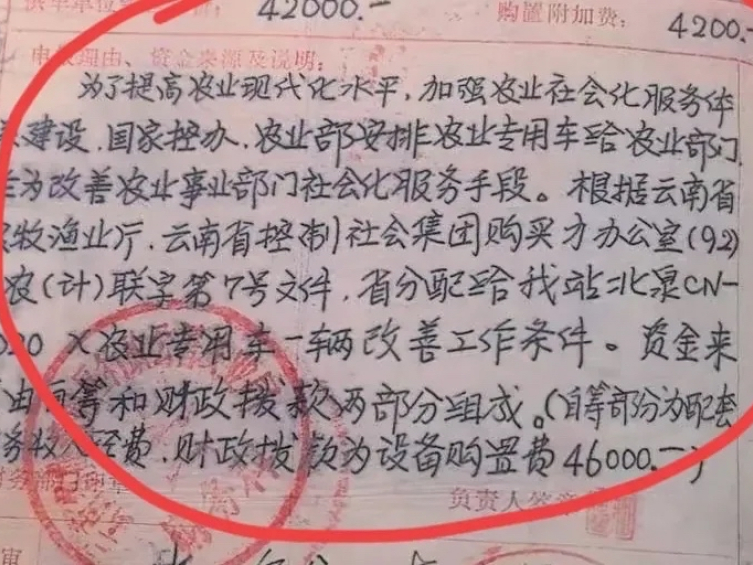 42000.- 购置附加费: 4200.-
申购理由、资金来源及说明:
为了提高农业现代化水平,加强农业社会化服务体
建设,国家控办、农业部安排农业专用车给农业部门
为改善农业事业部门社会化服务手段。根据云南省
牧渔业厅、云南省控制社会集团购买力办公室(92)
农(计)联字第7号文件,省分配给我站北泉CN-
020 X农业专用车一辆改善工作条件。资金来
由自筹和财政拨款两部分组成。(自筹部份为配套
务收入经费,财政拨款为设备购置费46000.-)
负责人签章